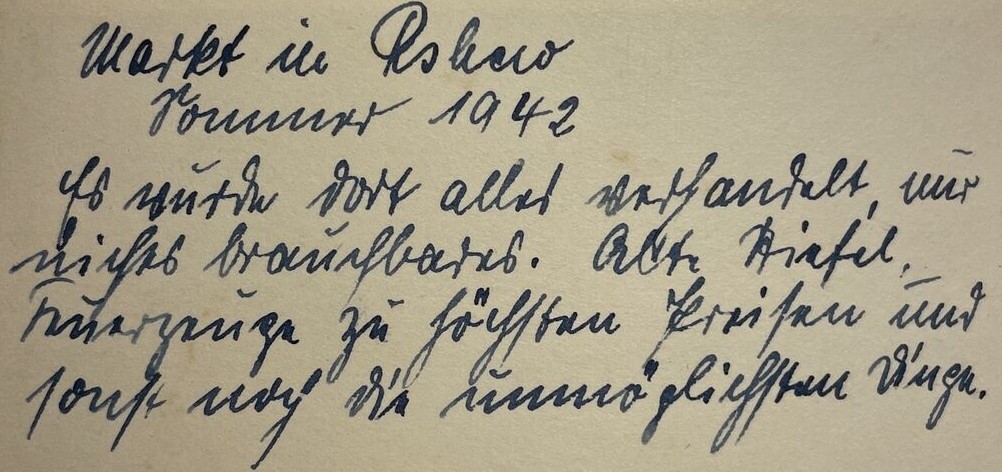 Markt in Rshew
Sommer 1942
Es wurde dort alles verhandelt, nur
nichts brauchbares. Alte Stiefel,
Feuerzeuge zu höchsten Preisen und
sonst noch die unmöglichsten Dinge.